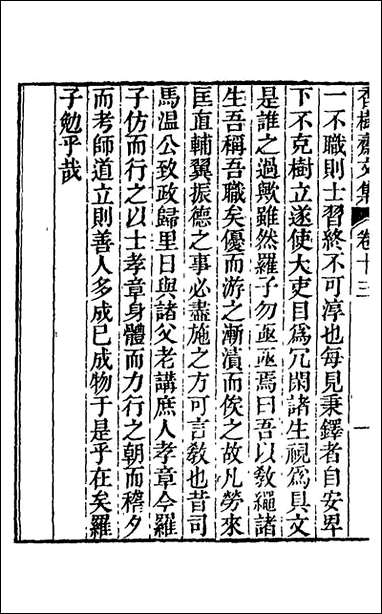 香樹齋文集 卷十三 一
一不職則士習終不可淳也每見秉鐸者自安卑
下不克樹立遂使大吏目為冗閑諸生視為具文
是誰之過歟雖然羅子勿亟亟焉曰吾以敎繩諸
生吾稱吾職矣優而游之漸漬而俟之故凡勞來
匡直輔翼振德之事必盡施之方可言敎也昔司
馬温公致政歸里日與諸父老講庶人孝章今羅
子仿而行之以士孝章身體而力行之朝而稽夕
而考師道立則善人多成已成物于是乎在矣羅
子勉乎哉